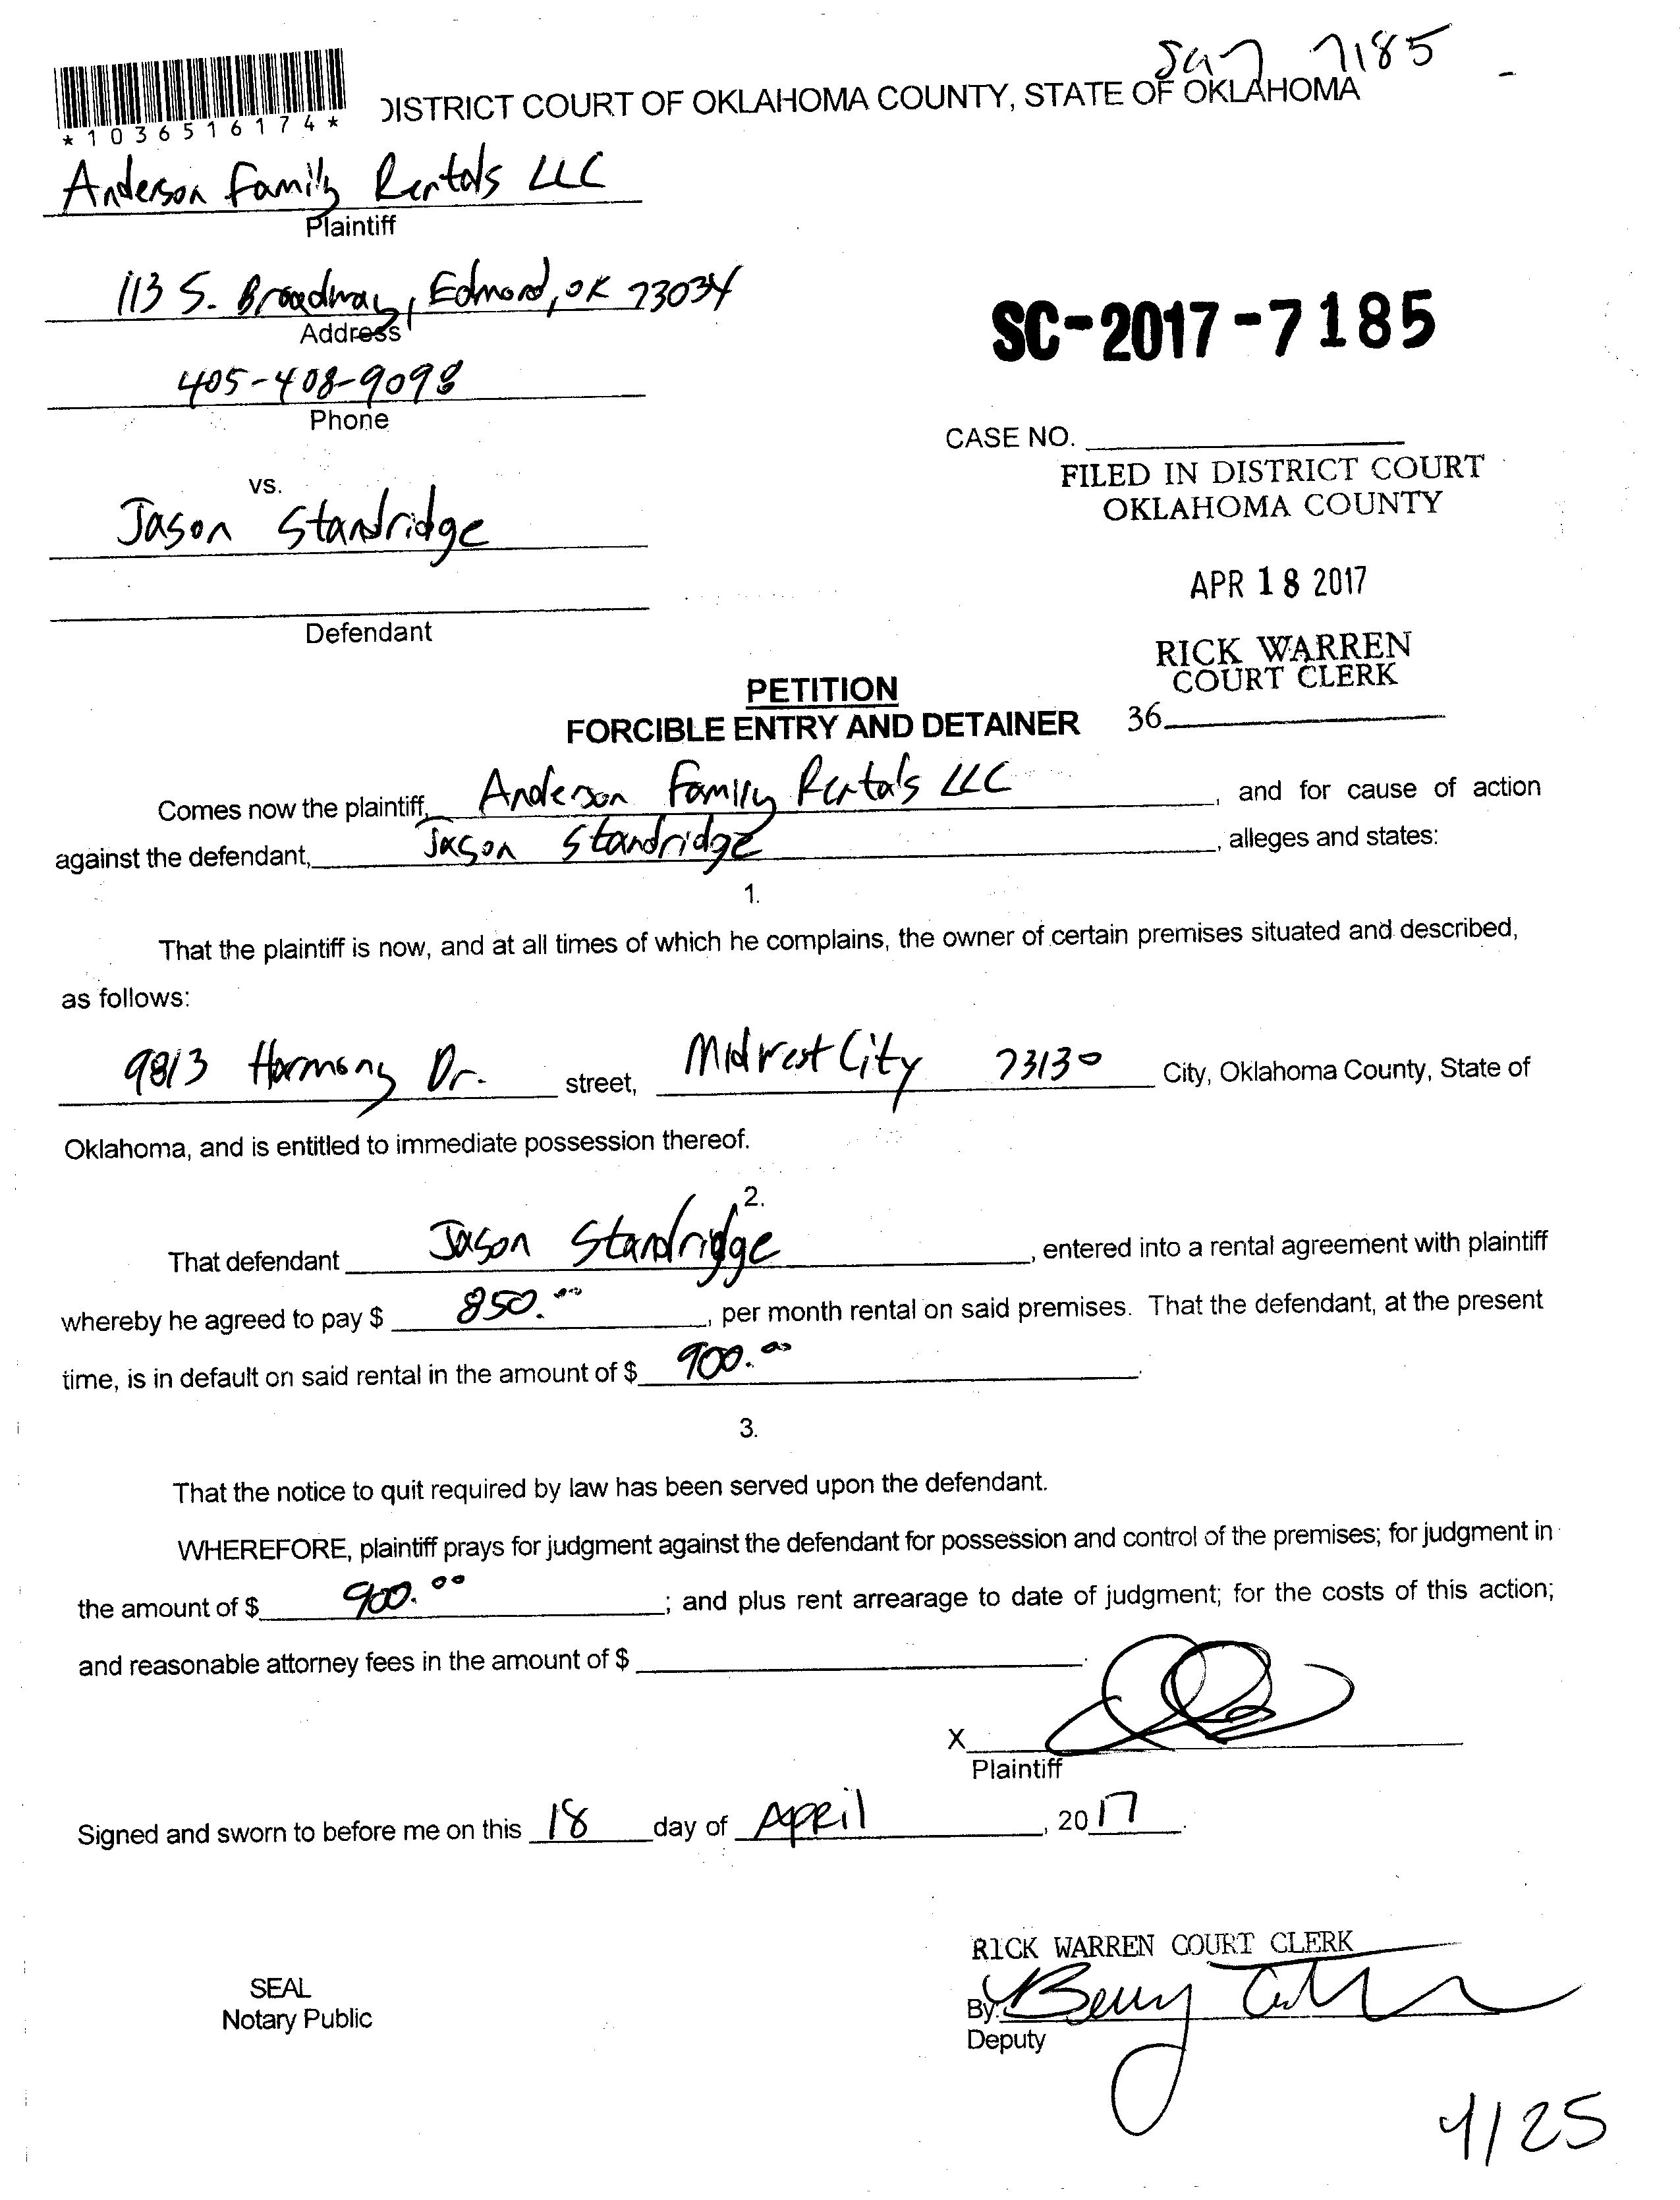 7185
*1036516174*
DISTRICT COURT OF OKLAHOMA COUNTY, STATE OF OKLAHOMA
Anderson Family Rentals LLC
Plaintiff
113 S. Broadway, Edmond, OK 73034
Address
405-408-9098
Phone
SC-2017-7185
CASE NO.
FILED IN DISTRICT COURT
OKLAHOMA COUNTY
vs.
Jason Standridge
APR 18 2017
Defendant
RICK WARREN
COURT CLERK
36
PETITION
FORCIBLE ENTRY AND DETAINER
Comes now the plaintiff, Anderson Family Rentals LLC, and for cause of action
against the defendant, Jason Standridge, alleges and states:
1.
That the plaintiff is now, and at all times of which he complains, the owner of certain premises situated and described,
as follows:
9813 Harmony Dr. street, Midwest City 73130 City, Oklahoma County, State of
Oklahoma, and is entitled to immediate possession thereof.
2.
That defendant Jason Standridge, entered into a rental agreement with plaintiff
whereby he agreed to pay $ 850.00, per month rental on said premises. That the defendant, at the present
time, is in default on said rental in the amount of $ 900.00.
3.
That the notice to quit required by law has been served upon the defendant.
WHEREFORE, plaintiff prays for judgment against the defendant for possession and control of the premises; for judgment in
the amount of $ 900.00; and plus rent arrearage to date of judgment; for the costs of this action;
and reasonable attorney fees in the amount of $ .
X
Plaintiff
Signed and sworn to before me on this 18 day of April, 2017.
RICK WARREN COURT CLERK
SEAL
Notary Public
By:
Deputy
4/25